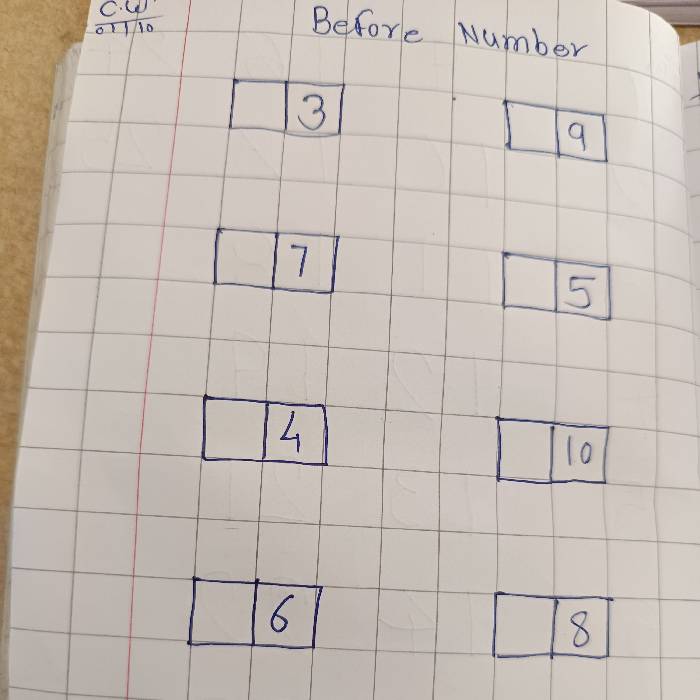 C.W
01/10
Before Number
3
9
7
5
4
10
6
8